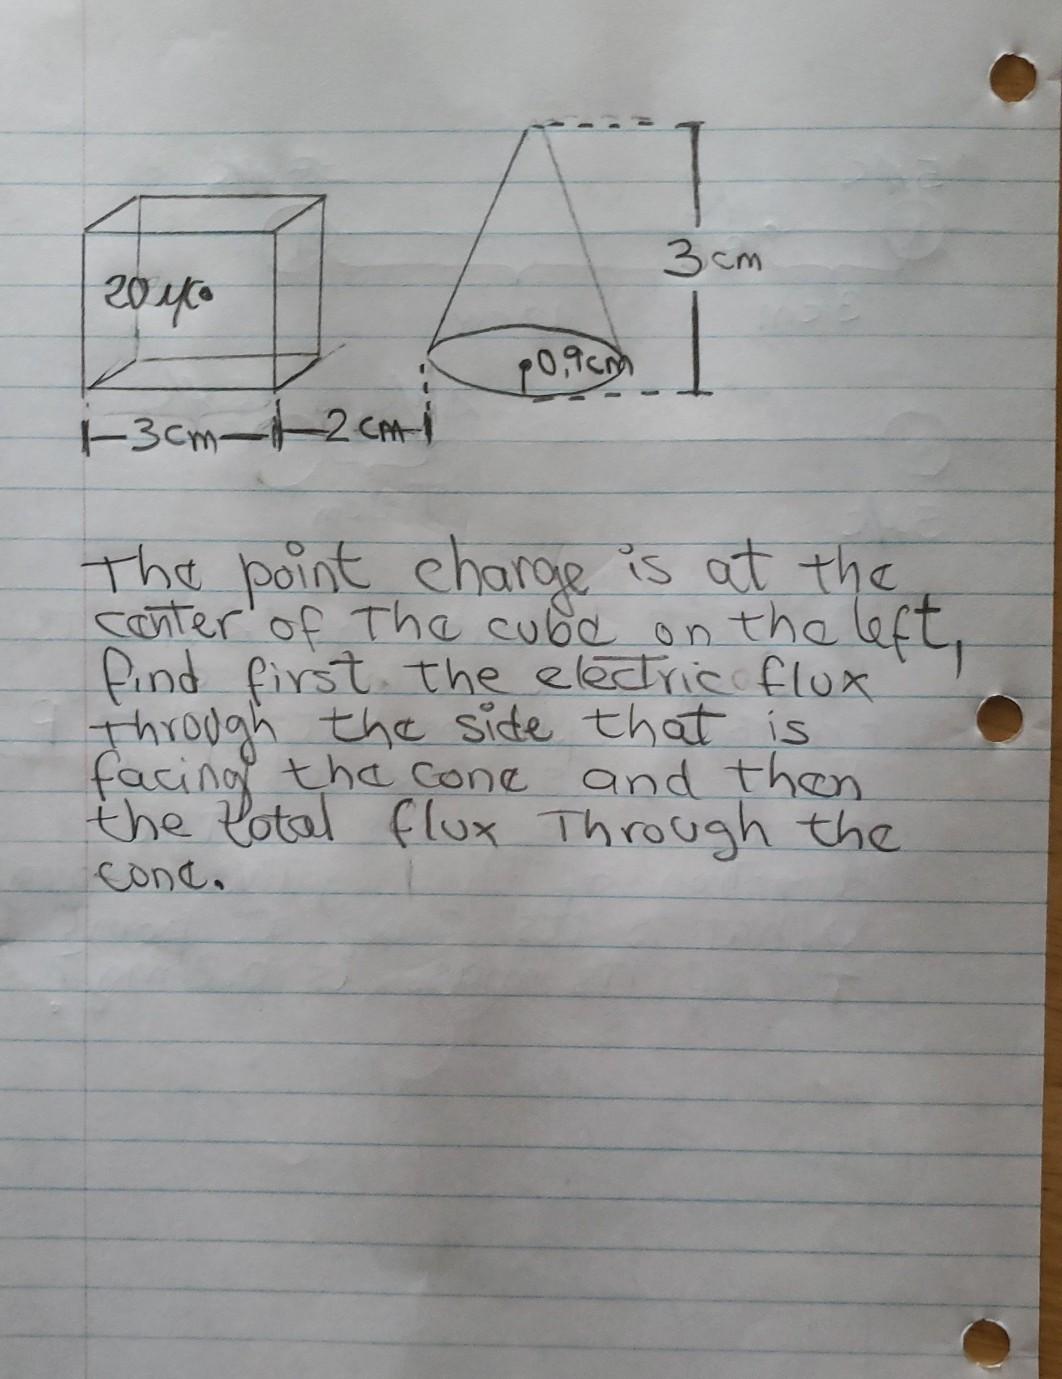 3 cm
20 μc
0.9cm
3cm
2 cm
The point charge is at the
center of The cube on the left,
find first the electric flux
through the side that is
facing the cone and then
the total flux Through the
cone.